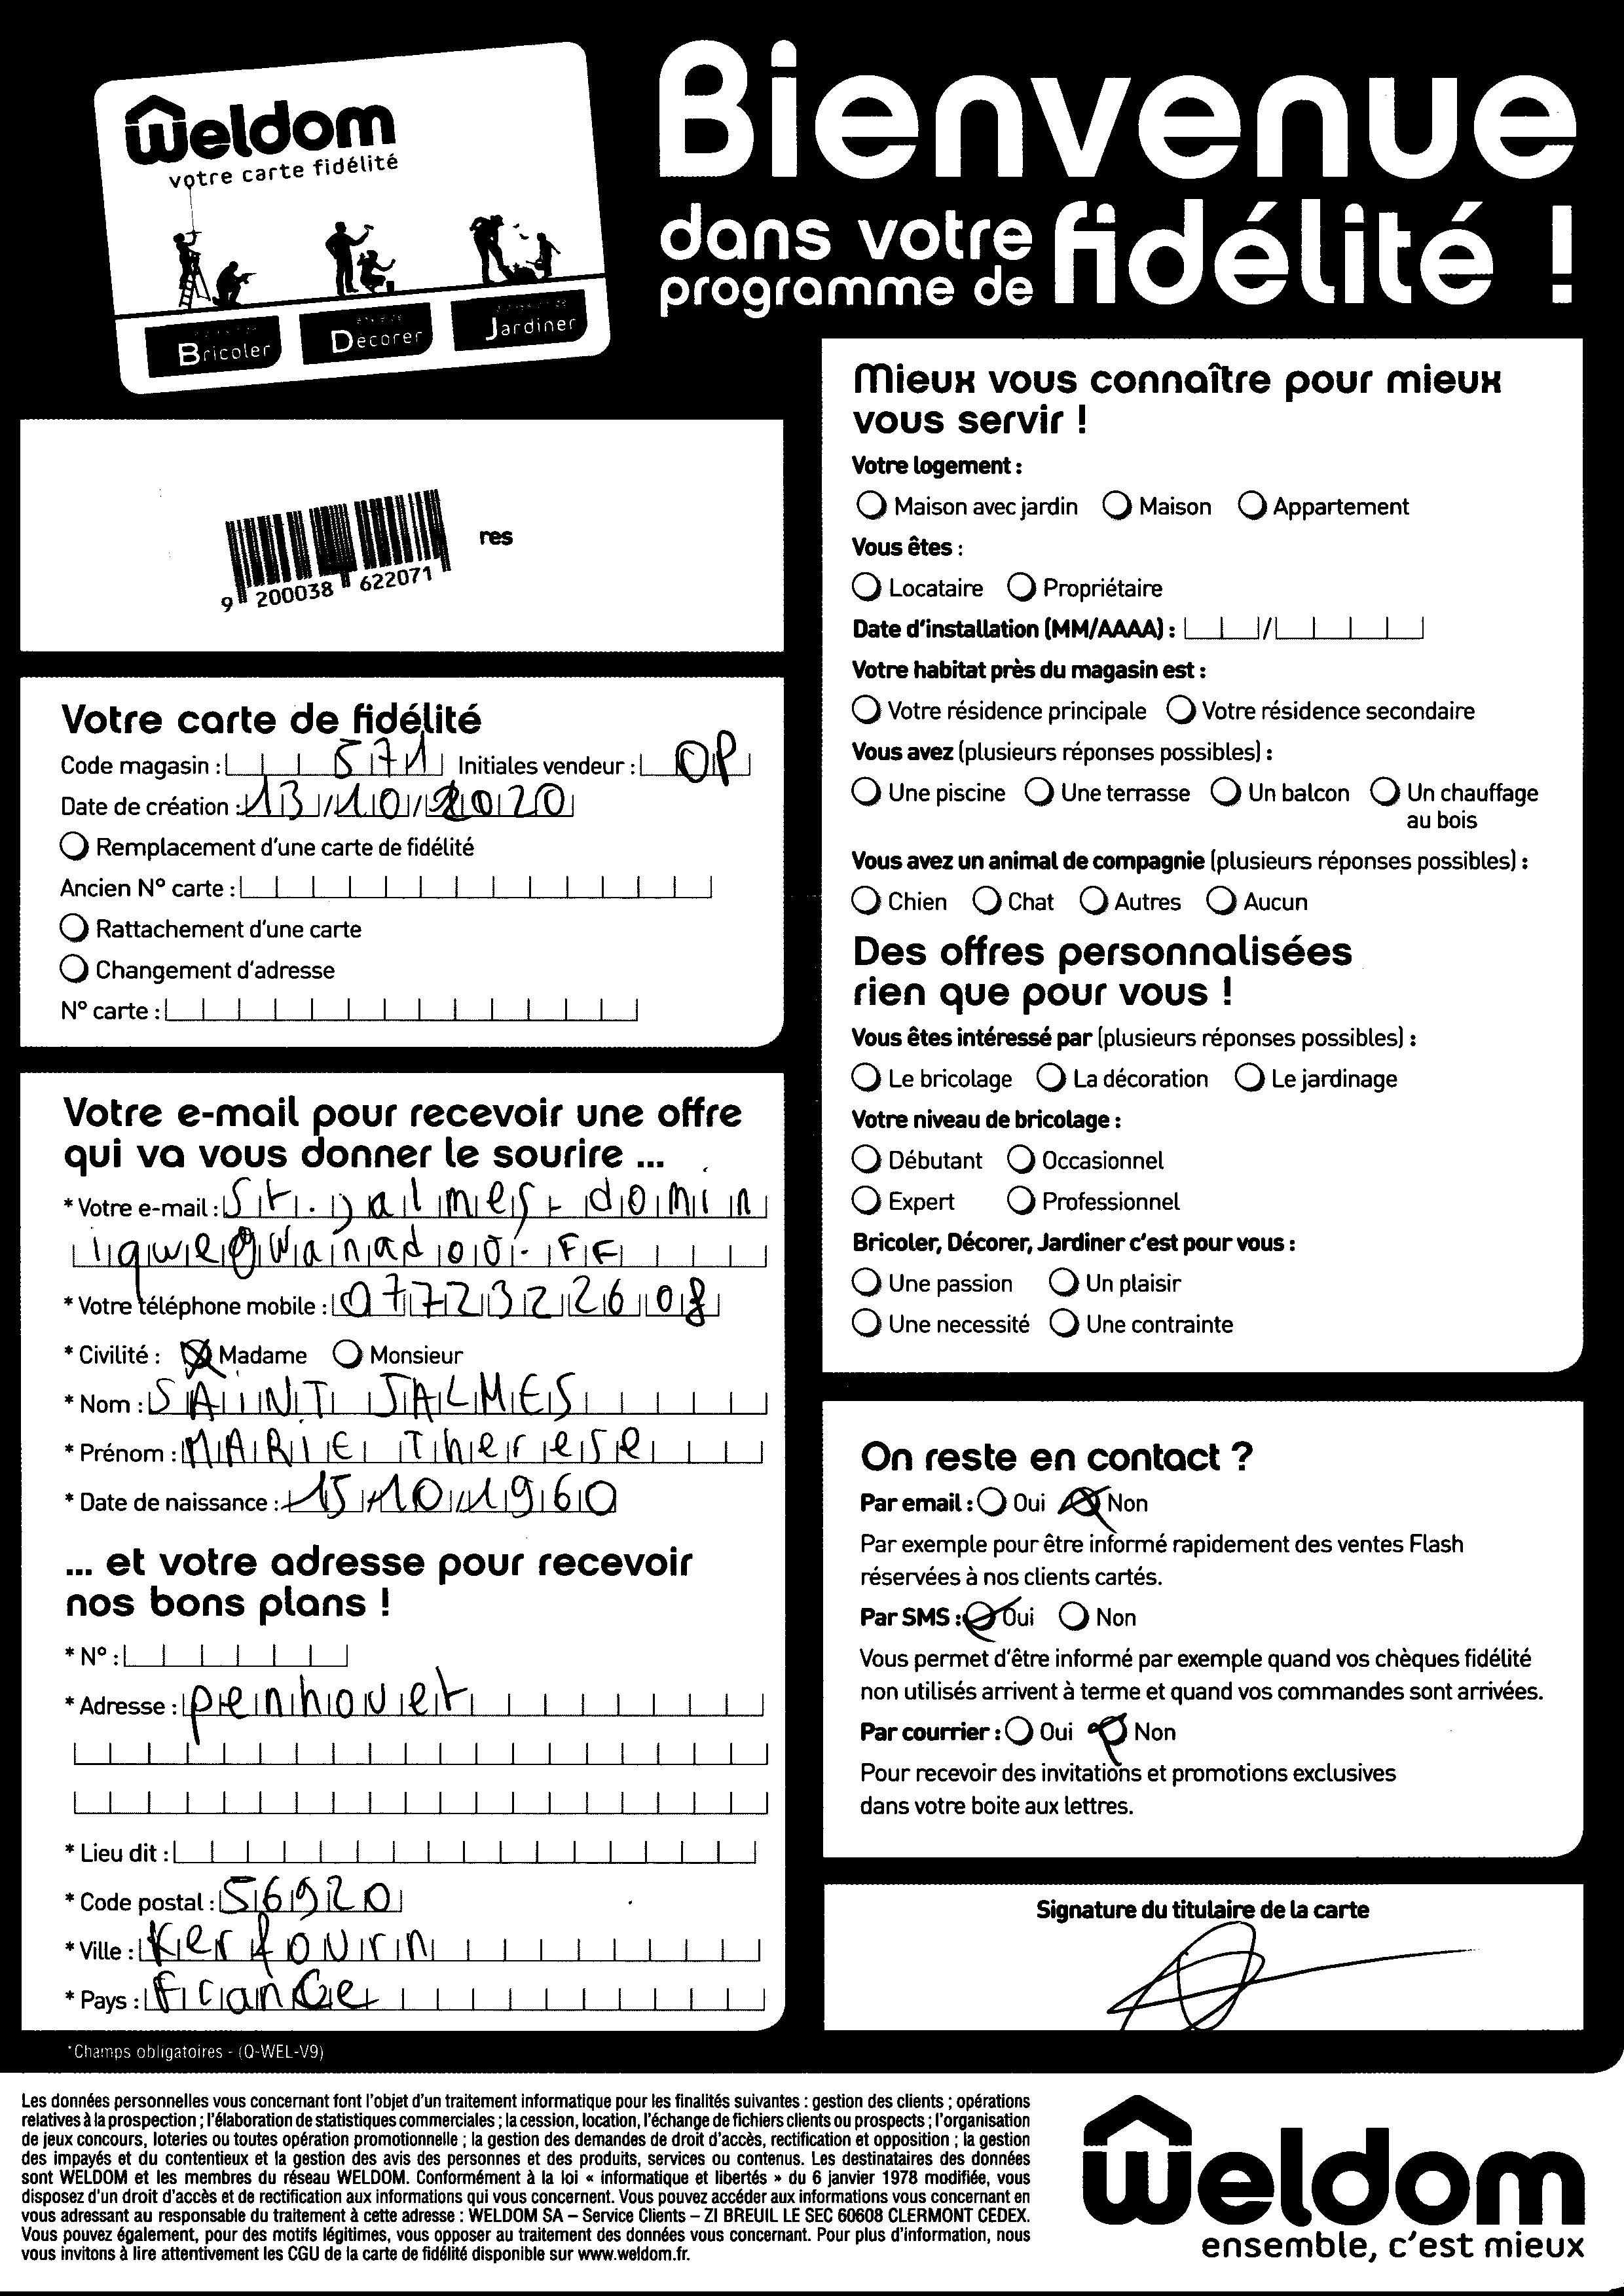 weldom
votre carte fidélité
Bricoler
Décorer
Jardiner
Bienvenue
dans votre
programme de
fidélité !
res
9 200038 622071
Votre carte de fidélité
Code magasin : 571 Initiales vendeur : OP
Date de création : 13/10/2020
Remplacement d'une carte de fidélité
Ancien N° carte :
Rattachement d'une carte
Changement d'adresse
N° carte :
Votre e-mail pour recevoir une offre
qui va vous donner le sourire ...
* Votre e-mail : St.jalmes- domin
ique@wanadoo.FF
* Votre téléphone mobile : 0772322608
* Civilité : Madame Monsieur
* Nom : SAINT JALMES
* Prénom : MARIE Therese
* Date de naissance : 15/10/1960
... et votre adresse pour recevoir
nos bons plans !
* N° :
* Adresse : penhouet
* Lieu dit :
* Code postal : 56920
* Ville : Kerfourn
* Pays : France
*Champs obligatoires - (Q-WEL-V9)
Mieux vous connaître pour mieux
vous servir !
Votre logement :
Maison avec jardin Maison Appartement
Vous êtes :
Locataire Propriétaire
Date d'installation (MM/AAAA) : /
Votre habitat près du magasin est :
Votre résidence principale Votre résidence secondaire
Vous avez (plusieurs réponses possibles) :
Une piscine Une terrasse Un balcon Un chauffage
au bois
Vous avez un animal de compagnie (plusieurs réponses possibles) :
Chien Chat Autres Aucun
Des offres personnalisées
rien que pour vous !
Vous êtes intéressé par (plusieurs réponses possibles) :
Le bricolage La décoration Le jardinage
Votre niveau de bricolage :
Débutant Occasionnel
Expert Professionnel
Bricoler, Décorer, Jardiner c'est pour vous :
Une passion Un plaisir
Une necessité Une contrainte
On reste en contact ?
Par email : Oui Non
Par exemple pour être informé rapidement des ventes Flash
réservées à nos clients cartés.
Par SMS : Oui Non
Vous permet d'être informé par exemple quand vos chèques fidélité
non utilisés arrivent à terme et quand vos commandes sont arrivées.
Par courrier : Oui Non
Pour recevoir des invitations et promotions exclusives
dans votre boite aux lettres.
Signature du titulaire de la carte
Les données personnelles vous concernant font l'objet d'un traitement informatique pour les finalités suivantes : gestion des clients ; opérations
relatives à la prospection ; l'élaboration de statistiques commerciales ; la cession, location, l'échange de fichiers clients ou prospects ; l'organisation
de jeux concours, loteries ou toutes opération promotionnelle ; la gestion des demandes de droit d'accès, rectification et opposition ; la gestion
des impayés et du contentieux et la gestion des avis des personnes et des produits, services ou contenus. Les destinataires des données
sont WELDOM et les membres du réseau WELDOM. Conformément à la loi « informatique et libertés » du 6 janvier 1978 modifiée, vous
disposez d'un droit d'accès et de rectification aux informations qui vous concernent. Vous pouvez accéder aux informations vous concernant en
vous adressant au responsable du traitement à cette adresse : WELDOM SA – Service Clients – ZI BREUIL LE SEC 60608 CLERMONT CEDEX.
Vous pouvez également, pour des motifs légitimes, vous opposer au traitement des données vous concernant. Pour plus d'information, nous
vous invitons à lire attentivement les CGU de la carte de fidélité disponible sur www.weldom.fr.
weldom
ensemble, c'est mieux